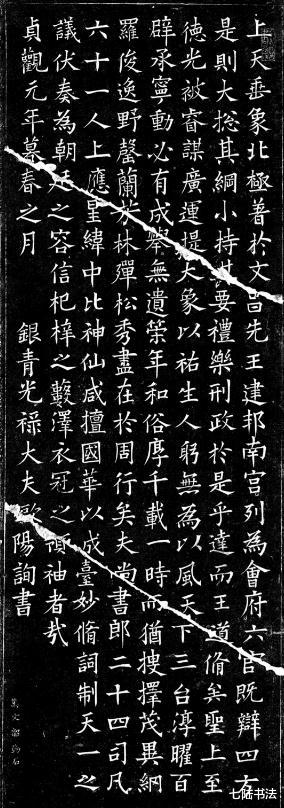 上天垂象北極著於文昌先王建邦南宮列為會府六官既辯四方
是則大揔其綱小持其要禮樂刑政於是乎達而王道脩矣聖上至
德光被睿謀廣運提大象以祐生人躬無為以風天下三台淳曜百
辟承寧動必有成舉無遺策年和俗厚千載一時而猶搜擇茂異網
羅俊逸野罄蘭芳林殫松秀盡在於周行矣夫尚書郎二十四司凡
六十一人上應星緯中比神仙咸擅國華以成臺妙脩詞制天一之
議伏奏為朝廷之容信杞梓之藪澤衣冠之領袖者哉
貞觀元年暮春之月 銀青光祿大夫歐陽詢書
七陆书法